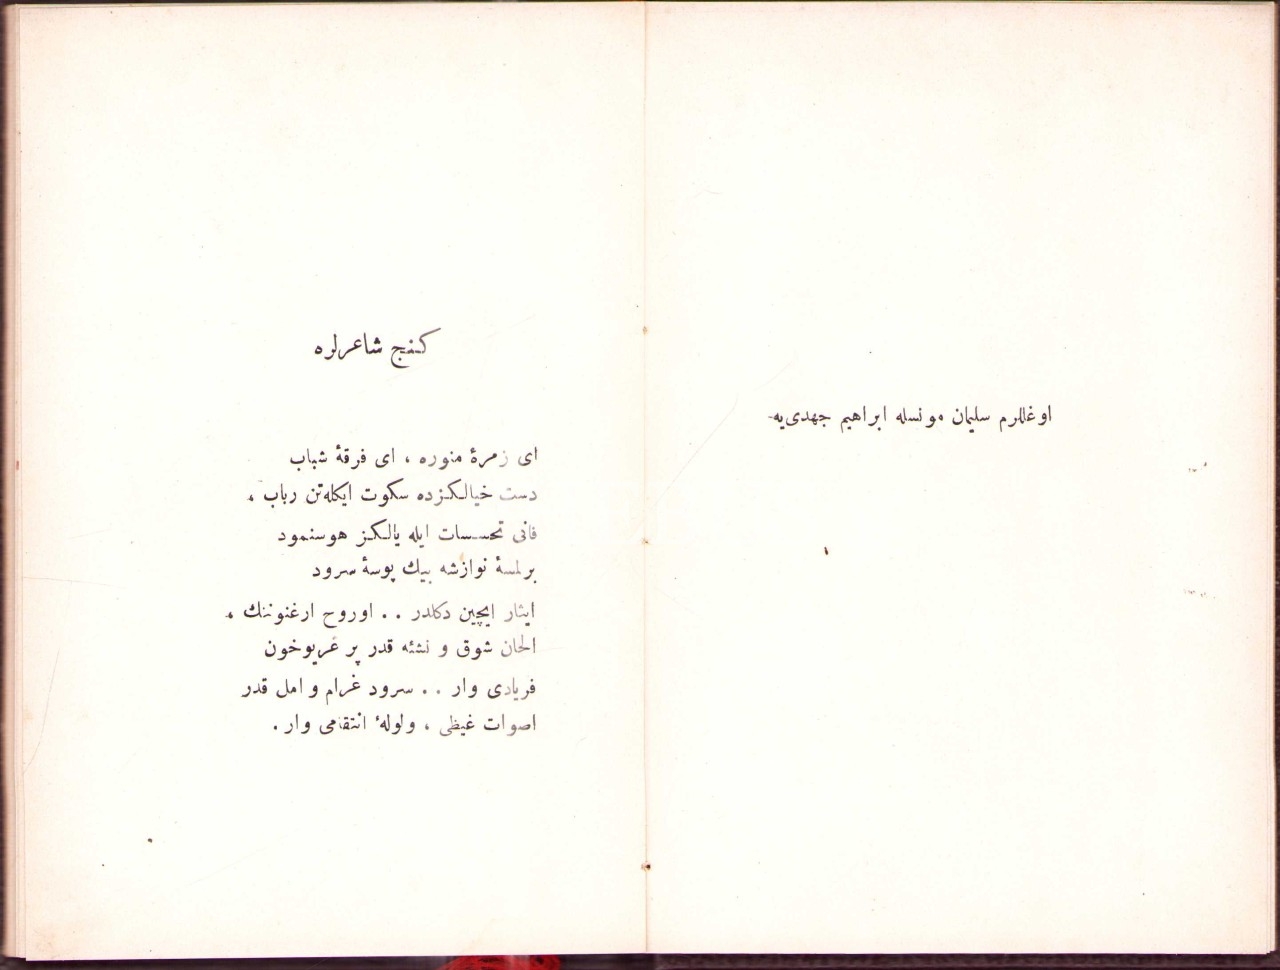 اوغللرم سليمان مونسله ابراهيم جهدى‌يه
كنج شاعرلره
اى زمرۀ منوره ، اى فرقۀ شباب
دست خيالكزده سكوت ايكله‌تن رباب ،
فانى تحسسات ايله يالكز هوسنمود
برلمسۀ نوازشه بيك بوسۀ سرود
ايثار ايچين دكلدر . . اوروح ارغنوننك ،
الحان شوق و نشئه قدر پر غريوخون
فريادى وار . . سرود غرام و امل قدر
اصوات غيظى ، ولولۀ انتقامى وار .